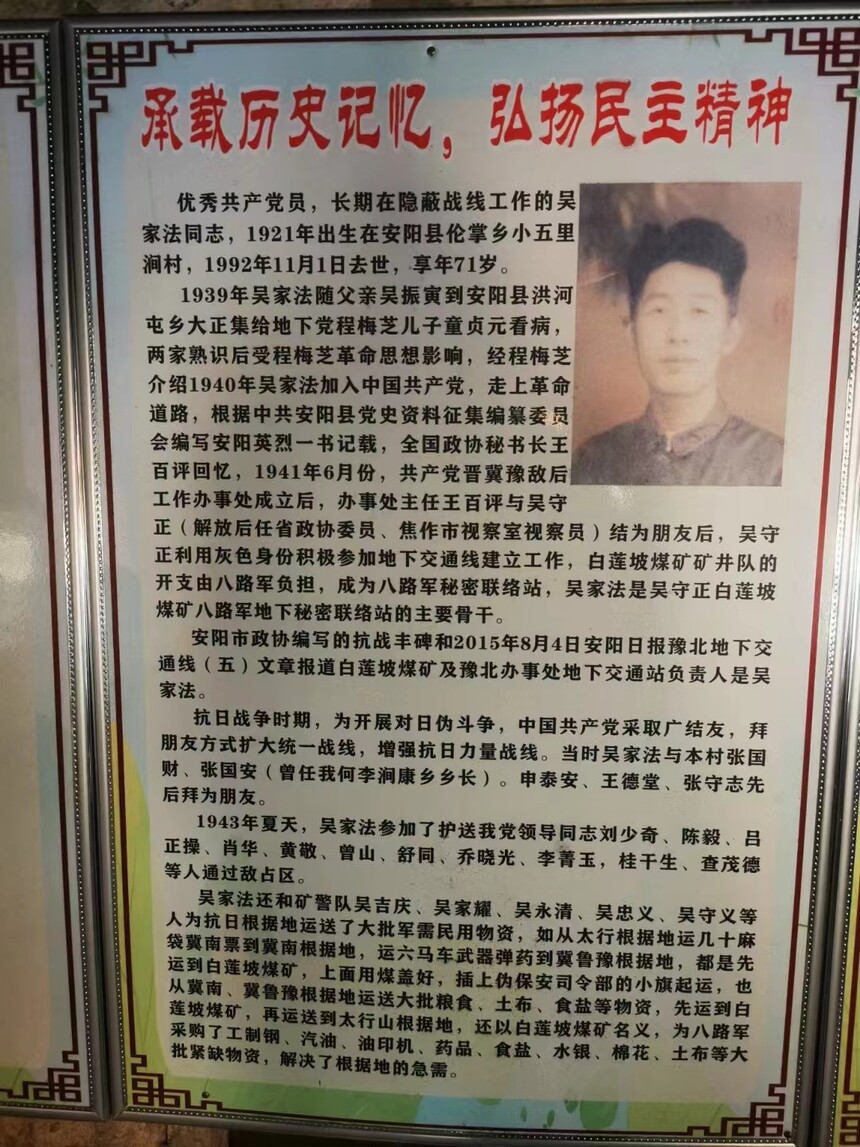 承载历史记忆，弘扬民主精神
优秀共产党员，长期在隐蔽战线工作的吴
家法同志，1921年出生在安阳县伦掌乡小五里
涧村，1992年11月1日去世，享年71岁。
1939年吴家法随父亲吴振寅到安阳县洪河
屯乡大正集给地下党程梅芝儿子童贞元看病，
两家熟识后受程梅芝革命思想影响，经程梅芝
介绍1940年吴家法加入中国共产党，走上革命
道路，根据中共安阳县党史资料征集编纂委员
会编写安阳英烈一书记载，全国政协秘书长王
百评回忆，1941年6月份，共产党晋冀豫敌后
工作办事处成立后，办事处主任王百评与吴守
正（解放后任省政协委员、焦作市视察室视察员）结为朋友后，吴守
正利用灰色身份积极参加地下交通线建立工作，白莲坡煤矿矿井队的
开支由八路军负担，成为八路军秘密联络站，吴家法是吴守正白莲坡
煤矿八路军地下秘密联络站的主要骨干。
安阳市政协编写的抗战丰碑和2015年8月4日安阳日报豫北地下交
通线（五）文章报道白莲坡煤矿及豫北办事处地下交通站负责人是吴
家法。
抗日战争时期，为开展对日伪斗争，中国共产党采取广结友，拜
朋友方式扩大统一战线，增强抗日力量战线。当时吴家法与本村张国
财、张国安（曾任我何李涧康乡乡长）。申泰安、王德堂、张守志先
后拜为朋友。
1943年夏天，吴家法参加了护送我党领导同志刘少奇、陈毅、吕
正操、肖华、黄敬、曾山、舒同、乔晓光、李菁玉，桂干生、查茂德
等人通过敌占区。
吴家法还和矿警队吴吉庆、吴家耀、吴永清、吴忠义、吴守义等
人为抗日根据地运送了大批军需民用物资，如从太行根据地运几十麻
袋冀南票到冀南根据地，运六马车武器弹药到冀鲁豫根据地，都是先
运到白莲坡煤矿，上面用煤盖好，插上伪保安司令部的小旗起运，也
从冀南、冀鲁豫根据地运送大批粮食、土布、食盐等物资，先运到白
莲坡煤矿，再运送到太行山根据地，还以白莲坡煤矿名义，为八路军
采购了工制钢、汽油、油印机、药品、食盐、水银、棉花、土布等大
批紧缺物资，解决了根据地的急需。